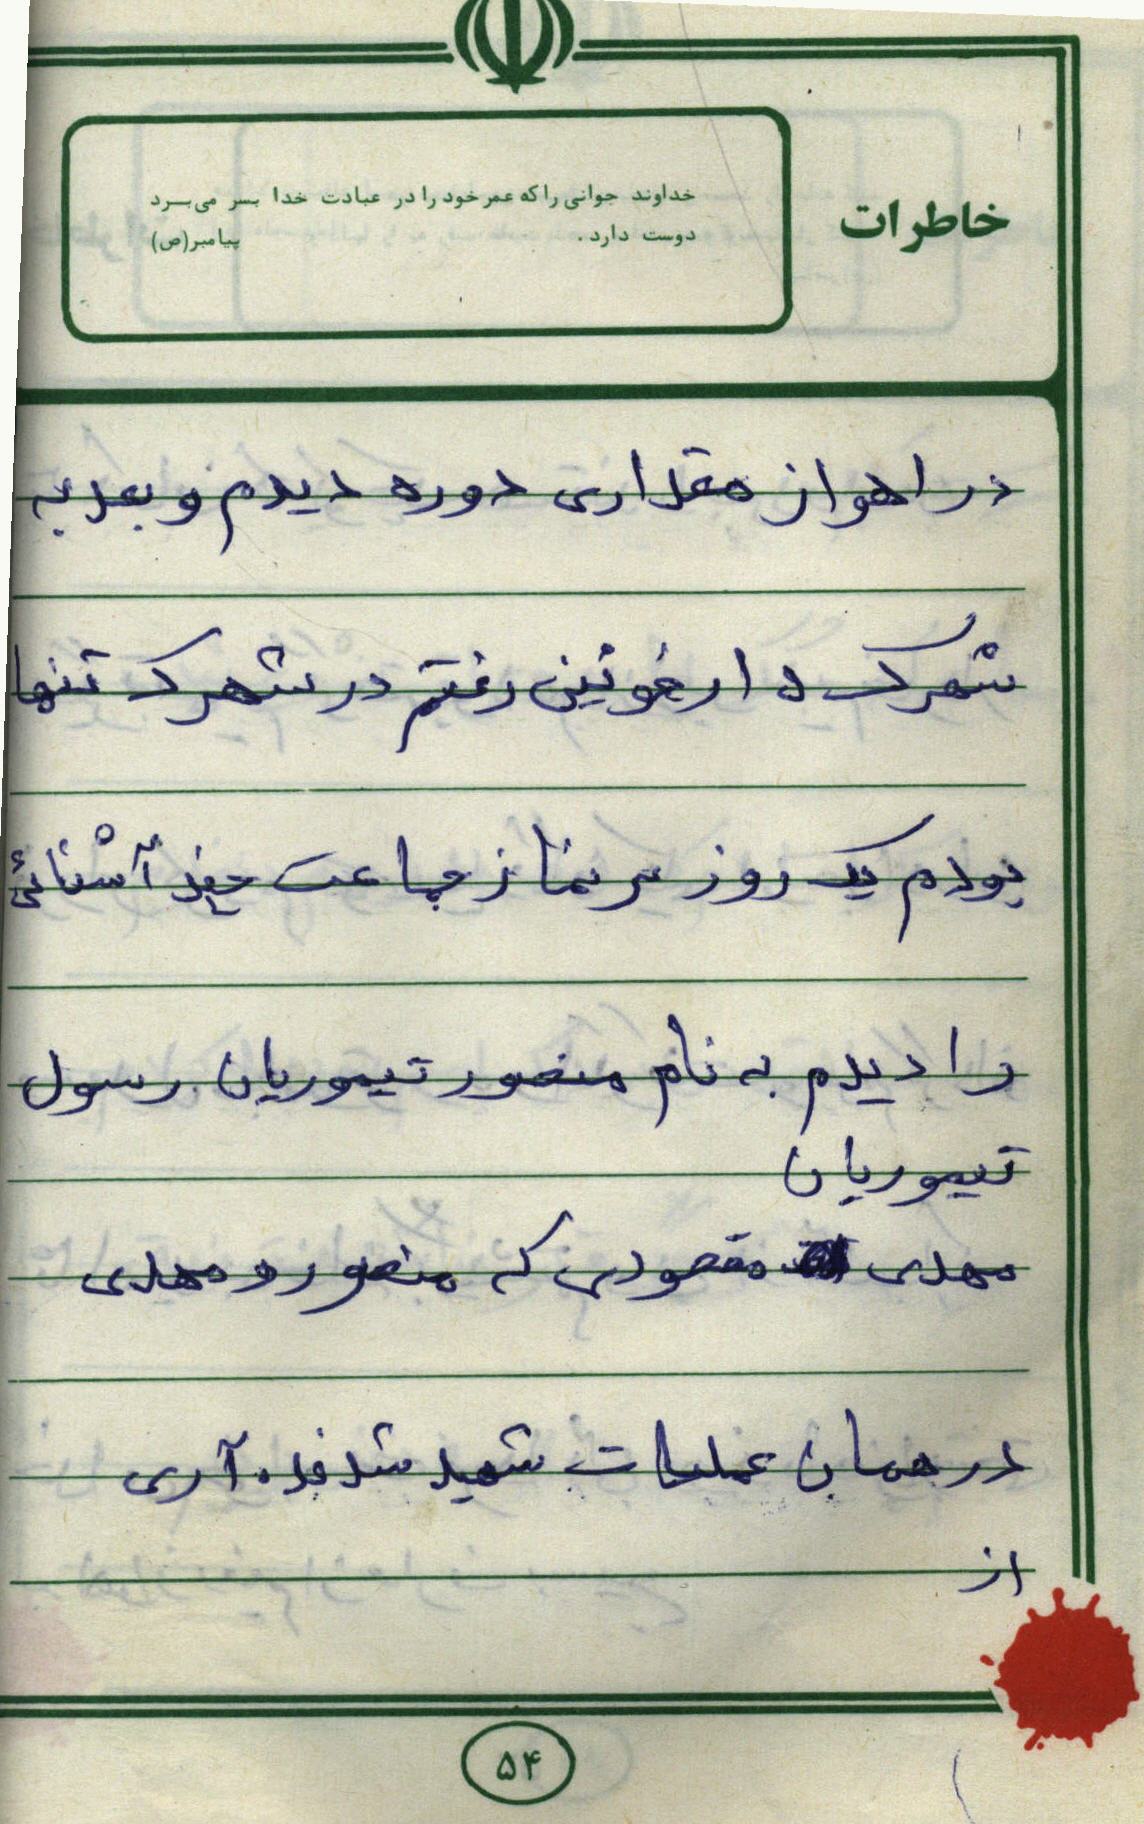 خاطرات
خداوند جوانی را که عمر خود را در عبادت خدا بسر می‌برد
دوست دارد. پیامبر(ص)
در اهواز مقداری دوره دیدم و بعد به
شهرک دارخوئین رفتم در شهرک تنها
بودم یک روز سر نماز جماعت چند آشنائی
را دیدم به نام منصور تیموریان. رسول
تیموریان
مهدی مقصودی که منصور و مهدی
در همان عملیات شهید شدند. آری
از
۵۴